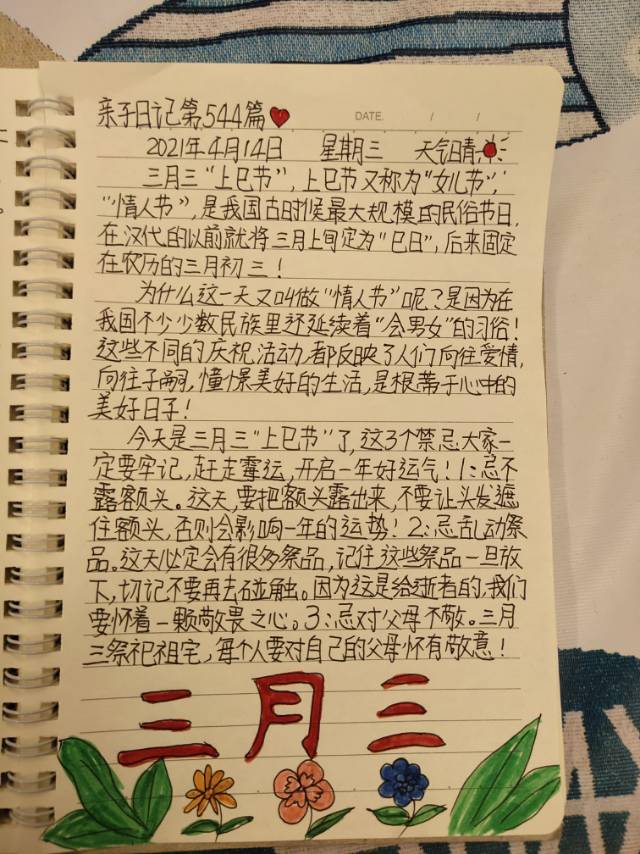 亲子日记第544篇
DATE. / /
2021年4月14日 星期三 天气晴
三月三“上巳节”,上巳节又称为“女儿节”,
“情人节”,是我国古时候最大规模的民俗节日,
在汉代的以前就将三月上旬定为“巳日”,后来固定
在农历的三月初三!
为什么这一天又叫做“情人节”呢?是因为在
我国不少少数民族里还延续着“会男女”的习俗!
这些不同的庆祝活动,都反映了人们向往爱情,
向往子嗣,憧憬美好的生活,是根蒂于心中的
美好日子!
今天是三月三“上巳节”了,这3个禁忌大家一
定要牢记,赶走霉运,开启一年好运气!1:忌不
露额头。这天,要把额头露出来,不要让头发遮
住额头,否则会影响一年的运势!2:忌乱动祭
品。这天必定会有很多祭品,记住这些祭品一旦放
下,切记不要再去碰触。因为这是给逝者的,我们
要怀着一颗敬畏之心。3:忌对父母不敬。三月
三祭祀祖宅,每个人要对自己的父母怀有敬意!
三月三